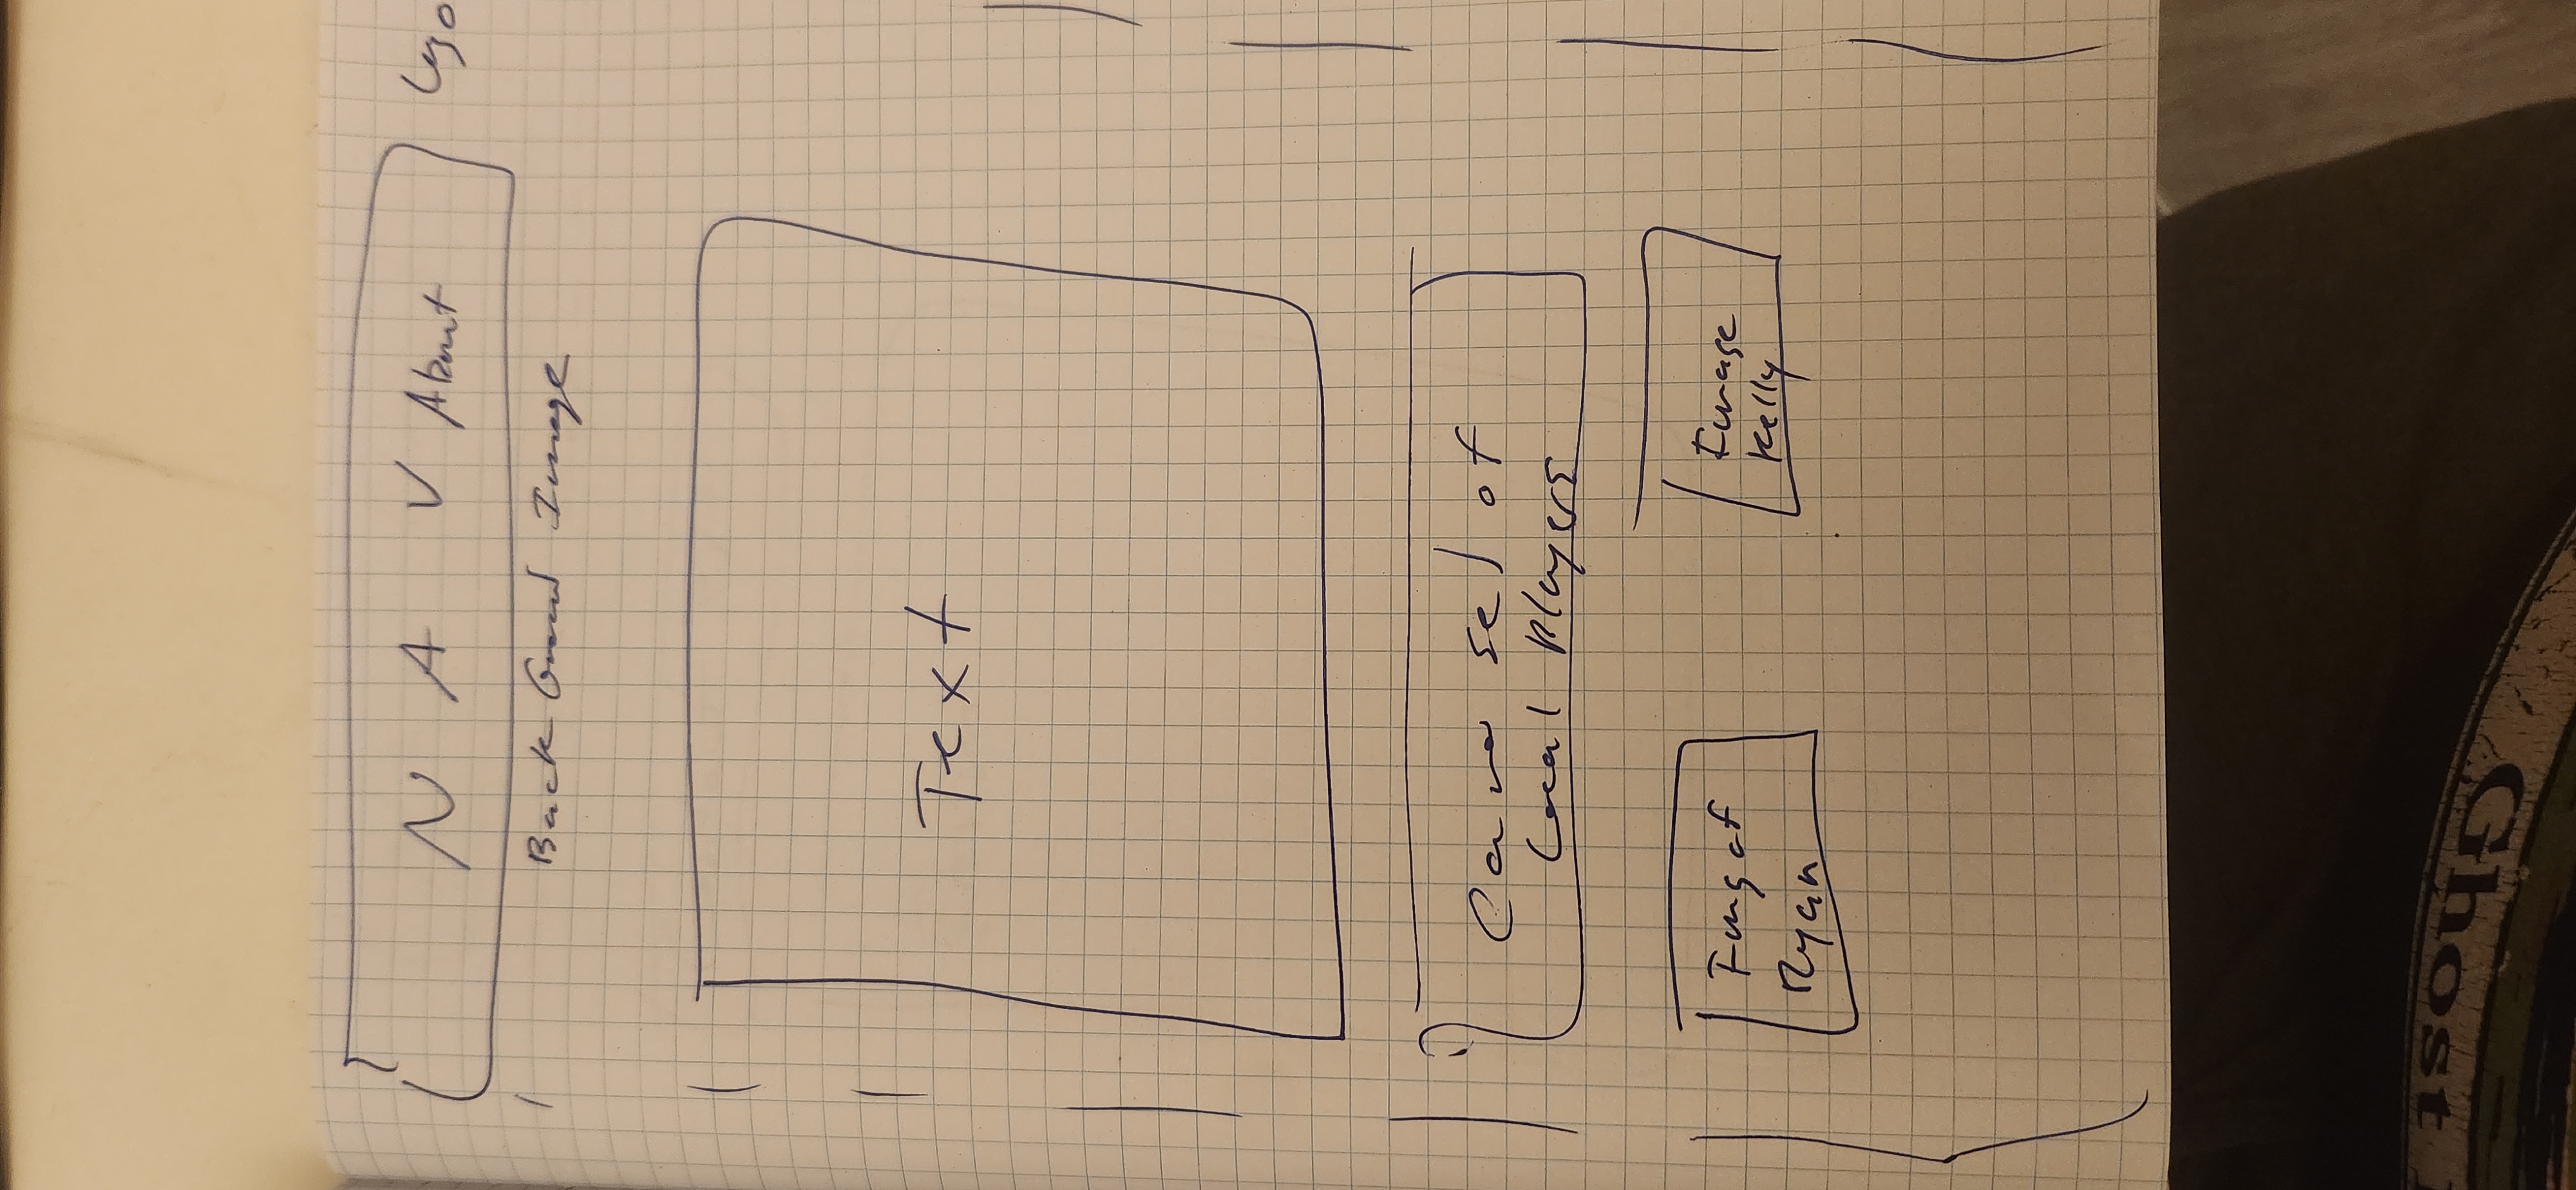 N A V About Logo
Back Ground Image
Text
Carousel of
Local Players
Image of
Ryan
Image
Kelly
Ghost